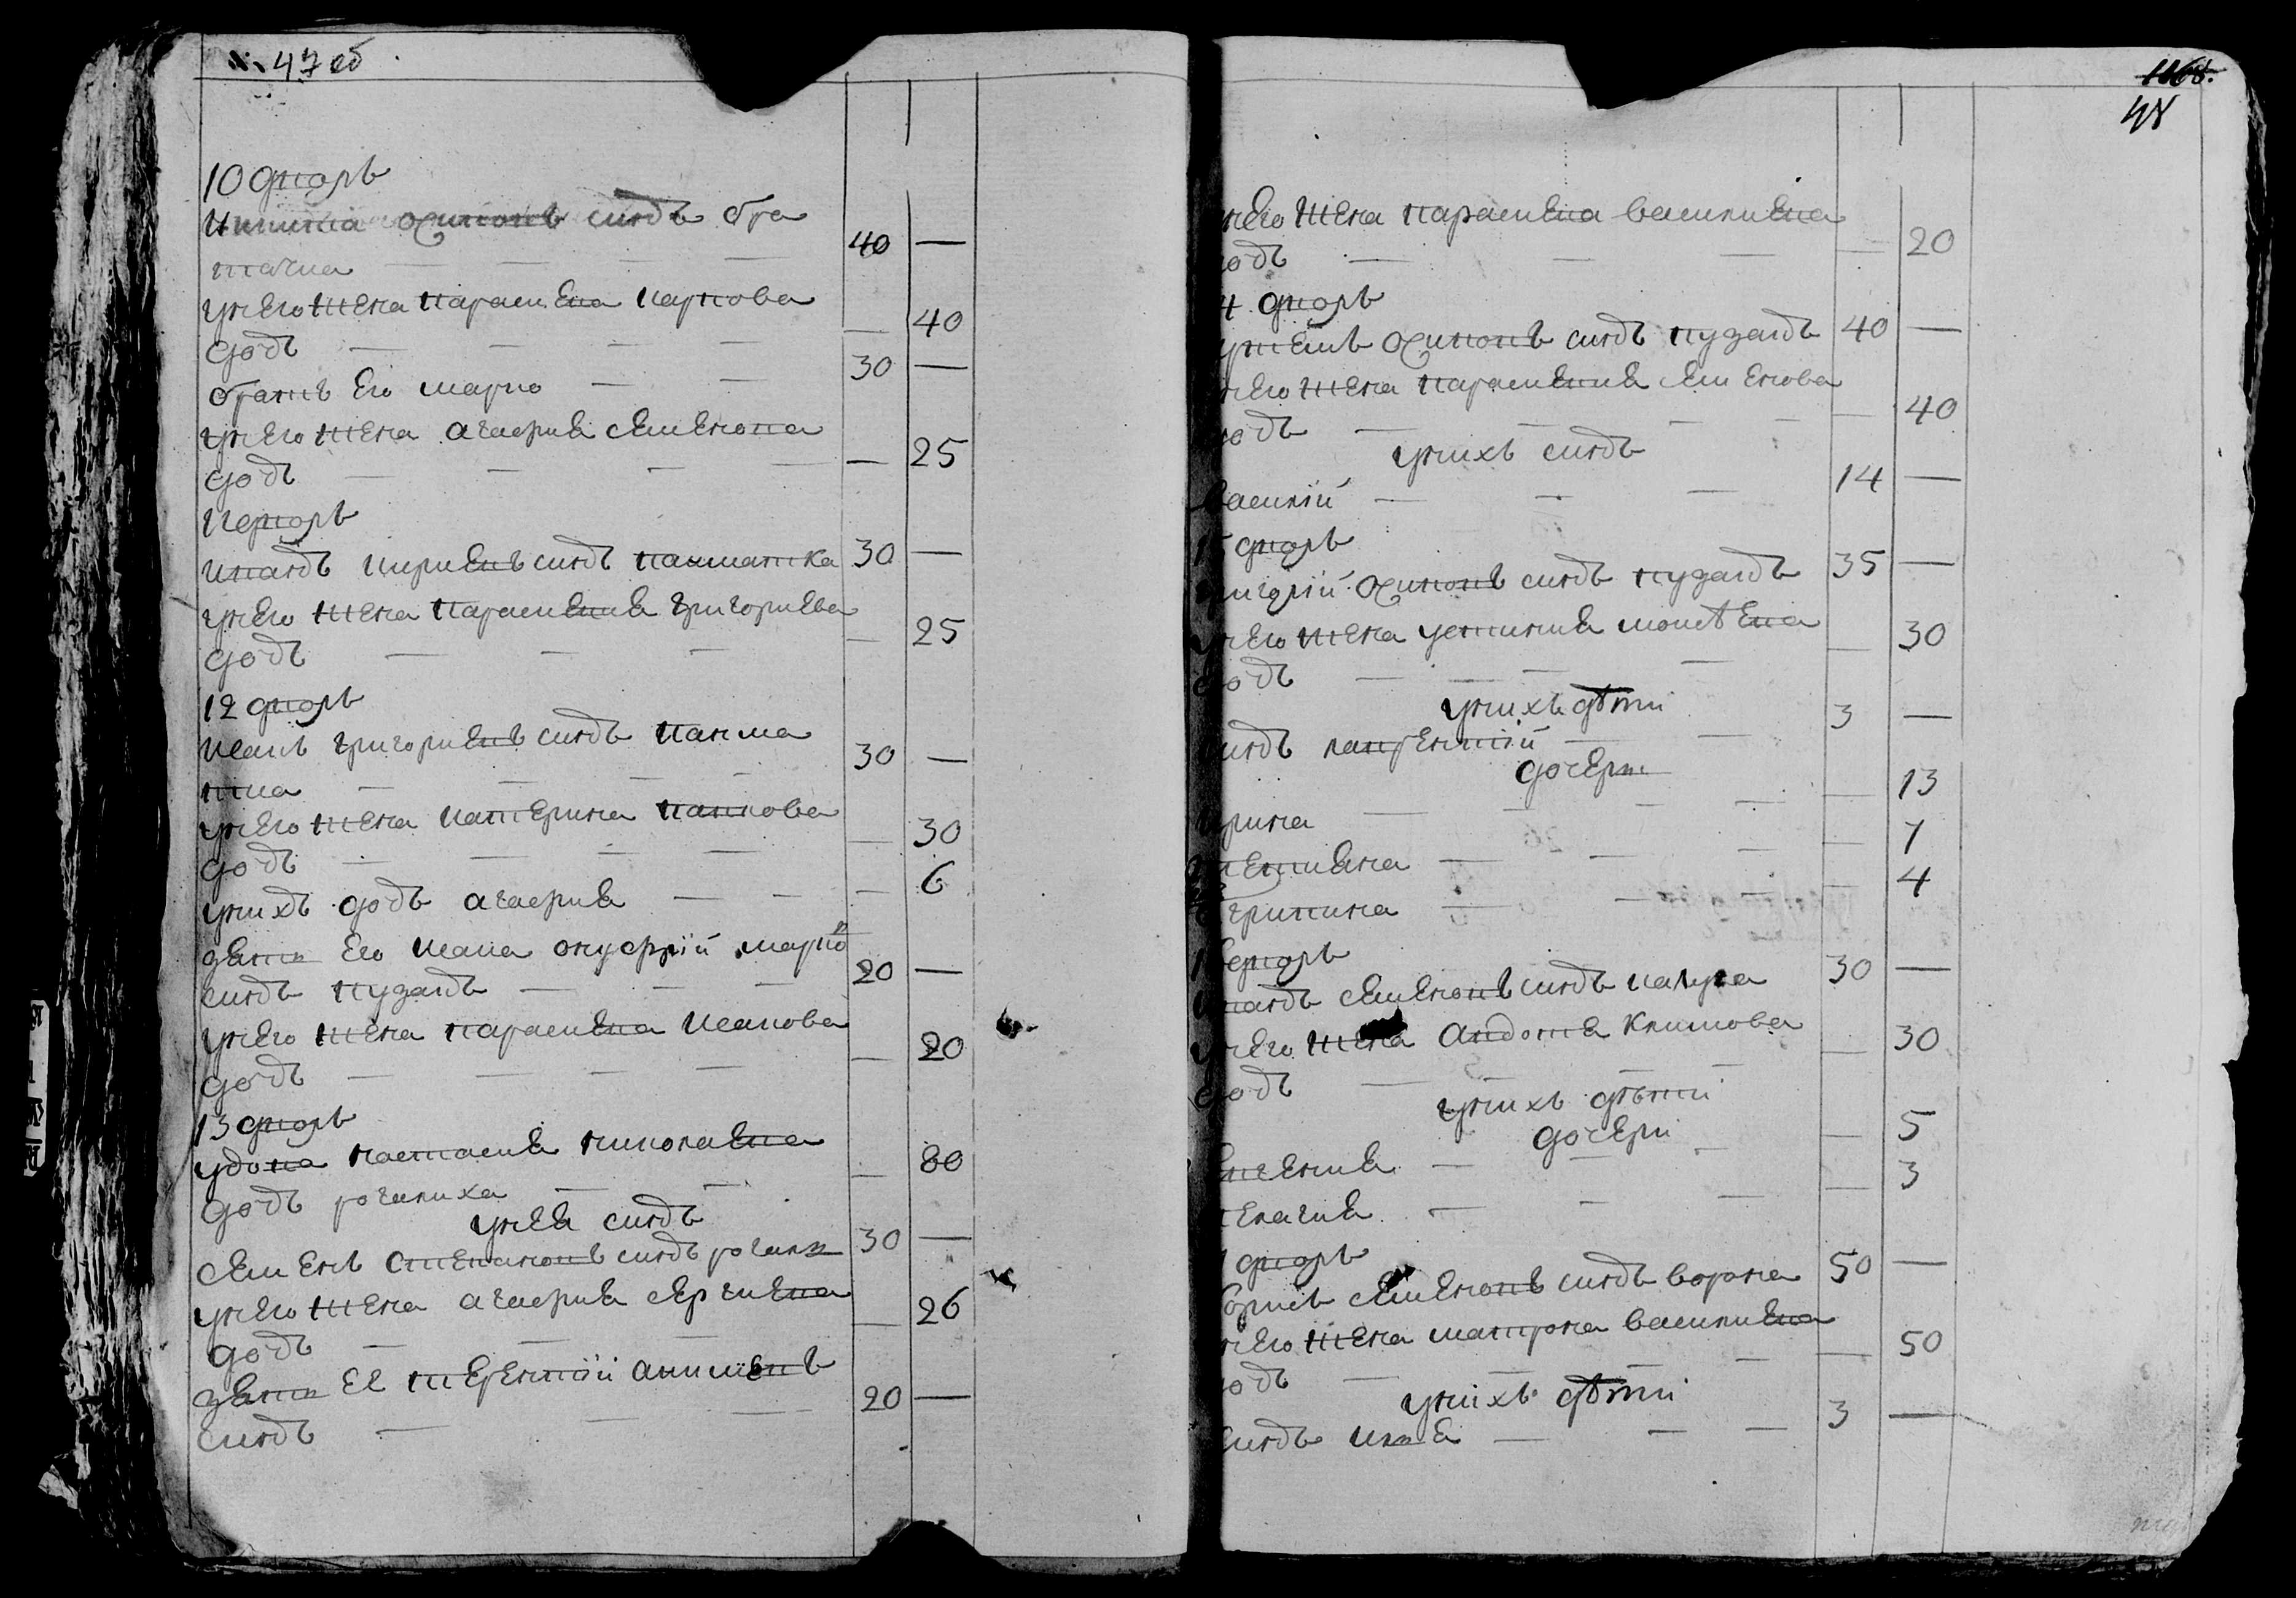 47 об
10 дворъ
Никита Осиповъ синъ бра
тачка 40 —
унего жена параскева карпова
дочъ — 40
братъ его марко 30 —
унего жена агафия семенова
дочъ — 25
11 дворъ
иванъ кириевъ синъ 30 —
унего жена параскевия григориева
дочъ — 25
12 дворъ
исакъ григориевъ синъ
30 —
унего жена катерина
дочъ — 30
унихъ дочъ агафия — 6
зять его исака онуфрий марко
синъ пузанъ 20 —
унего жена параскева исакова
дочъ — 20
13 дворъ
удова настасия николаева
дочъ рогачиха — 80
унея синъ
семенъ степановъ синъ 30 —
унего жена агафия сергиева
дочъ — 26
зять ее терентий акимовъ
синъ 20 —
1168.
48
него жена параскева василиева
очъ — 20
4 дворъ
Осиповъ синъ пузанъ 40 —
него жена параскевия семенова
очъ — 40
унихъ синъ
василий 14 —
дворъ
ригорий Осиповъ синъ пузанъ 35 —
него жена устиния моисѣева
очъ — 30
унихъ дѣти
инъ лаврентий 3 —
дочери
рина — 13
— 7
грипина — 4
дворъ
ванъ семеновъ синъ 30 —
него жена Авдотия Климова
дочъ — 30
унихъ дѣтий
дочери
евгения — 5
елагия — 3
дворъ
борисъ семеновъ синъ ворона 50 —
него жена матрона василиева
очъ — 50
унихъ дѣти
синъ илия 3 —